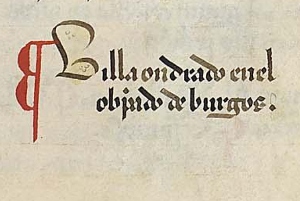 Billa ondrado enel
obpado de burgos.